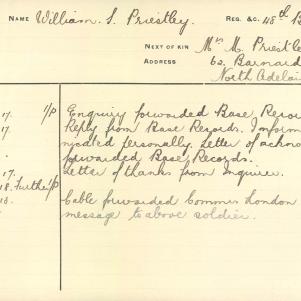 NAME William S. Priestley. REG. &C. 48th B
NEXT OF KIN Mrs M. Priestle
ADDRESS 62. Barnard
North Adelai
17. 1/P Enquiry forwarded Base Recor
17. Reply from Base Records. Inform
nicated personally. Letter of ackno
forwarded Base Records.
17. Letter of thanks from enquirer.
18. Further 1/P Cable forwarded Commrs London
18. message to above soldier.